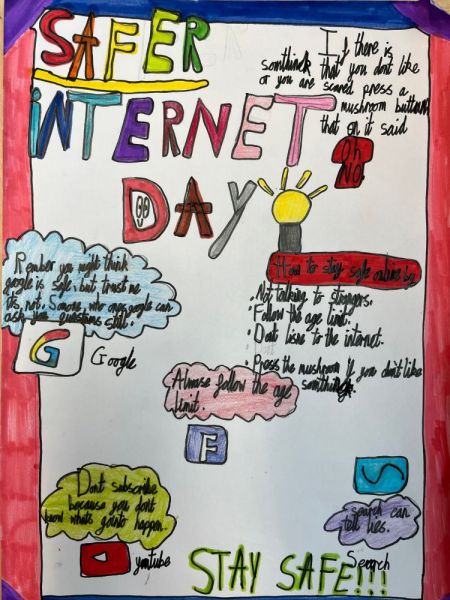 SAFER
INTERNET
DAY
If there is
somthink that you dont like
or you are scared press a
mushroom button
that on it said
Oh
No
Rember you might think
google is safe, but trust me
it's not. Somone who ones google can
ask you questions still.
G
Google
How to stay safe online by
• Not talking to strangers.
• Follow the age limit.
• Dont lisne to the internet.
• Press the mushroom If you don't like
somthink.
Alwase follow the age
limit.
F
Dont subscribe
because you dont
know whats gointo happen.
youtube
search can
tell lies.
Search
STAY SAFE!!!